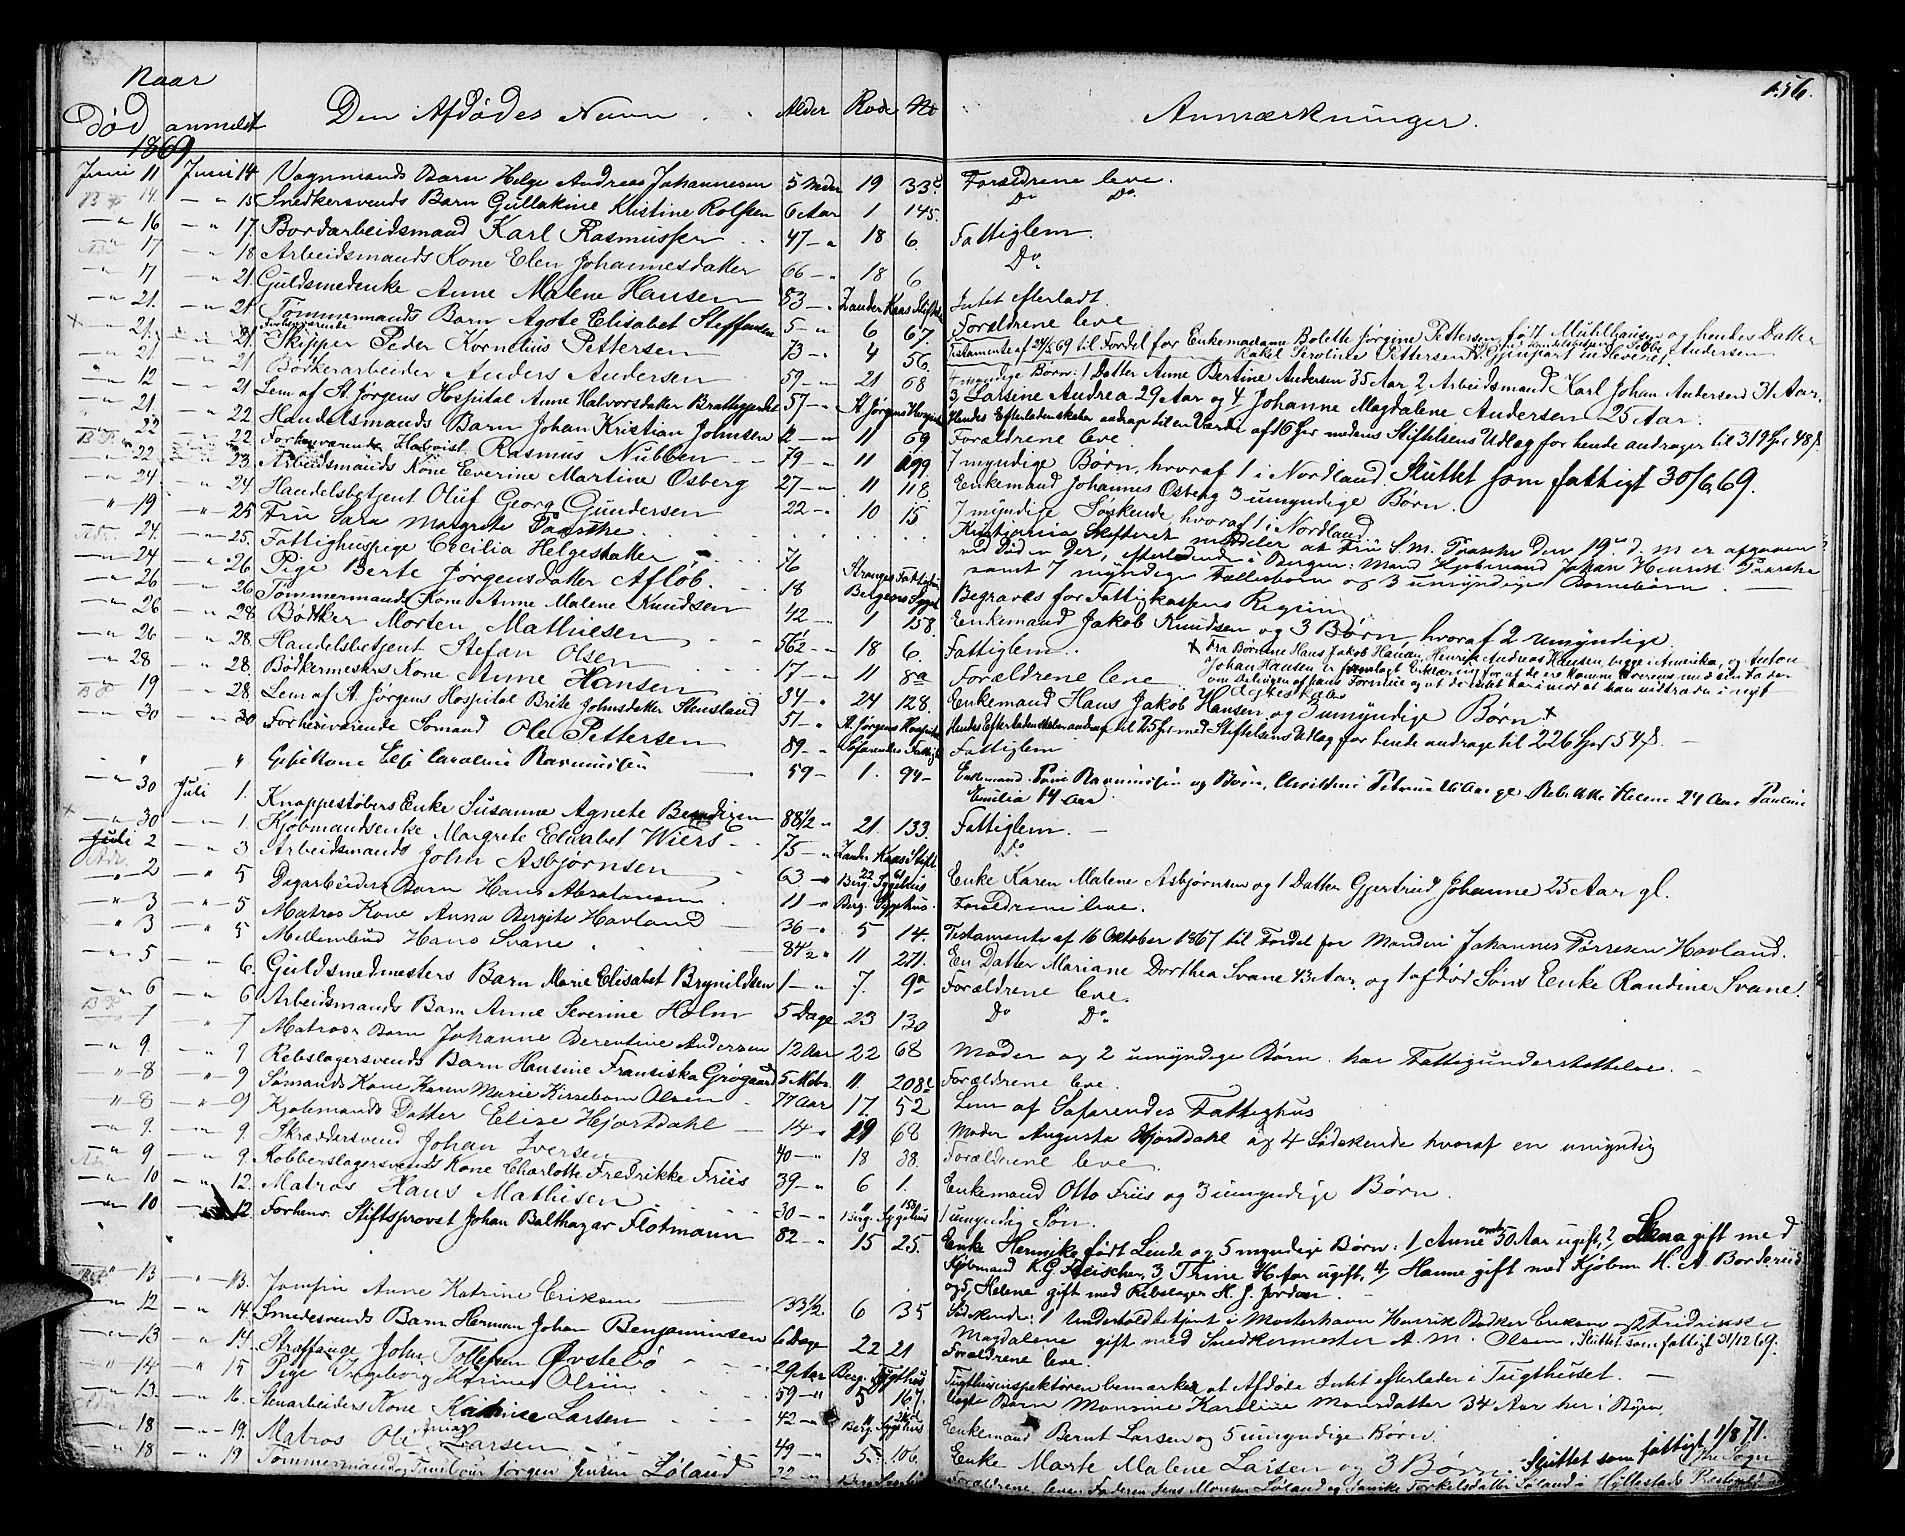 156.
Naar
Død anmeldt Den Afdødes Navn Alder Rode No Anmærkninger.
1869
Juni 11 Juni 14 Vognmands Barn Helge Andreas Johannesen 5 Mdr 19 33c Forældrene leve.
14. 15 Snedkersvends Barn Gullakine Kristine Rolfsen 6 Aar 1 145. Do Do
16 17 Bordarbeidsmand Karl Rasmussen 47 18 6. Fattiglem.
17 18 Arbeidsmands Kone Elen Johannesdatter 66 18 6 Do
17 21. Guldsmedenke Anne Malene Hansen 83 Zander Kaas Stiftelse Intet efterladt.
21. 21 Tømmermands Barn Agate Elisabet Steffensen 5 6 67. Forældrene leve
21. 21. Forhenværende Skipper Peder Kornelius Pettersen 73 4 56. Testamente af 24/5 69 til Fordel for Enkemadame Bolette Jørgine Pettersen, født Mühlhausen og hendes Datter
Rakel Peroline Pettersen
21 21 Bødkerarbeider Anders Andersen 59 21 68 4 myndige Børn: 1 Datter Anne Bertine Andersen 35 Aar, 2 Arbeidsmand Karl Johan Andersen 31 Aar,
3, Larsine Andrea 29 Aar og 4, Johanne Magdalene Andersen 25 Aar.
12 21 Lem af St. Jørgens Hospital Anne Halvorsdatter Brattegjerdet 57 St Jørgens Hospital Hendes Efterladenskaber androg til en Værdi af 16 Spd medens Stiftelsens Udlæg for hende androger til 319 Spd 48 s.
21. 22 Handelsmands Barn Johan Kristian Johnsen 2 11 69 Forældrene leve.
22 22. Forhenværende Rasmus Nubben 79 11 199 7 myndige Børn, hvoraf 1 i Nordland. Sluttet som fattigt 30/6 69.
22 23. Arbeidsmands Kone Everine Martine Osberg 27 11 118. Enkemand Johannes Osberg 3 umyndige Børn.
24. 24. Handelsbetjent Oluf Georg Gundersen 22 10 15 7 myndige Søskende, hvoraf 1 i Nordland
19 25 Fru Sara Margrete Paasche Kristiania Skifteret melder at Fru S.M. Paasche den 19de d. M. er afgaaen
ved Død der, efterladende i Bergen: Mand Kjøbmand Johan Henrik Paasche
samt 7 myndige Fællesbørn og 3 umyndige Børnebørn.
24. 25. Fattighuspige Cecilia Helgesdatter 76 Stranges Fattighus Begraves for Fattigkassens Regning
24 26 Pige Berte Jørgensdatter Afløb. 18 Bergens Sygeh
26 26 Tømmermands Kone Anne Malene Knudsen 42 1 158. Enkemand Jakob Knudsen og 3 Børn, hvoraf 2 umyndige
26 28 Bødker Morten Mathiesen 56½ 18 6. Fattiglem.
26 28. Handelsbetjent Stefan Olsen 17 11 8a Forældrene leve
Fra Børnene Hans Jakob Hansen, Henrik Andreas Hansen, begge i Amerika, og Anton
Johan Hansen er fremlagt Erklæring for at de ere komne overens med sin Fader
om Delingen af hans Formue og at de Intet har imod at han indtræder i nyt
Ægteskab
28 28. Bødkermesters Kone Anne Hansen 34 24 128. Enkemand Hans Jakob Hansen og 3 umyndige Børn
19 28. Lem af St. Jørgens Hospital Brite Johnsdatter Stensland 57 St. Jørgens Hospital Hendes Efterladenskaber androg til 25 Spd med Stiftelsens Udlæg for hende androge til 226 Spd 54 s.
30 30 Forhenværende Sømand Ole Pettersen 89 Søfarendes Fattigh Fattiglem
Kone Caroline Rasmussen 59 1. 94 Enkemand Rasmussen og Børn, Petrine 26 Aar og Rebekke Helene 24 Aar Pauline
Emilia 14 Aar.
30 Juli 1. Knappestøbers Enke Susanne Agnete Bendixen 88½ 21. 133. Fattiglem.
30. 1. Kjøbmandsenke Margrete Elisabet Wiers 75 Zander Kaas Stift Do
Juli 2 3 Arbeidsmand John Asbjørnsen 63 22 61 Enke Karen Malene Asbjørnsen og 1 Datter Gjertrud Johanne 25 Aar gl.
2 5 Dagarbeiders Barn Hans Abrahamsen 11 Berg. Sygehus Forældrene leve.
3 5 Matros Kone Anna Bergite Havland 36 5 14. Testamente af 16 Oktober 1867 til Fordel for Manden Johannes Tørresen Havland.
3 5 Mellembud Hans Svane 84½ 11 271. En Datter Mariane Dorthea Svane 43 Aar, og 1 afdød Søns Enke Randine Svane.
5 6. Guldsmedmesters Barn Marie Elisabet Brynildsen 1 7. 9a Forældrene leve.
6 6 Arbeidsmands Barn Anne Severine Holm 5 Dage 23 130 Do Do
7 7 Matros Barn Johanne Berentine Andersen 12 Aar 22 68 Moder og 2 umyndige Børn har Fattigunderstøttelse.
9 9 Rebslagersvends Barn Hansine Fransiska Grøgaard 5 Mdr. 11. 208c Forældrene leve.
8 9 Sømands Kone Karen Marie Kirsebom Olsen 77 Aar 17. 52 Lem af Søfarendes Fattighus
8 9 Kjøbmands Datter Elise Hjortdahl 14 19 68 Moder Augusta Hjortdahl og 4 Sødskende hvoraf en umyndig
9. 9. Skræddersvend Johan Iversen 40 18 38. Forældrene leve.
9 9. Kobberslagersvends Kone Charlotte Fredrikke Friis 39 6 1. Enkemand Otto Friis og 3 umyndige Børn.
10 12. Matros Hans Mathisen 30 Berg. Sygehus 1 umyndig Søn.
10 12 Forhenv. Stiftsprovst Johan Balthazar Flotmann 82 15 25. Enke Henrike født Lende og 5 myndige Børn: 1, Anne omtr 50 Aar ugift, 2, Lena gift med
Kjøbmand K. G. Fleischer, 3, Trine 46 Aar ugift, 4, Hanne gift med Kjøbm. H. A. Bordevick
og 5, Helene gift med Rebslager H. J. Jordan.
13 13. Jomfru Anne Katrine Eriksen 33½. 6 35 Sødskende: 1 Underholdsbetjent i Mosterhavn Henrik Bødker Eriksen og 2 Fredrikke
Magdalene gift med Snedkermester A. M. Olsen. Sluttet som fattigt 31/12 69.
12 14. Smedesvends Barn Herman Johan Benjaminsen 6 Dage 22 21 Forældrene leve.
13 14. Straffange John Tollefsen Øvstebø 29 Aar Berg. Tugthus Tugthusinspektøren bemærker at Afdøde Intet efterlader i Tugthuset.
14 15 Pige Ingeborg Karine Olsen 59 5 167. Børn Monsine Karoline Monsdatter 34 Aar her i Byen.
13. 16. Stenarbeiders Kone Katrine Larsen 42 Berg Sygehus Enkemand Bernt Larsen og 5 umyndige Børn.
18 19. Matros Ole Larsen 49 5. 106. Enke Marte Malene Larsen og 3 Børn. Sluttet som fattigt 11/8 71.
18 19 Tømmermand Jørgen Jensen Løland 22 Berg Sygehus Forældrene leve: Faderen Jens Monsen Løland og Torkelsdatter Løland i Hyllestads